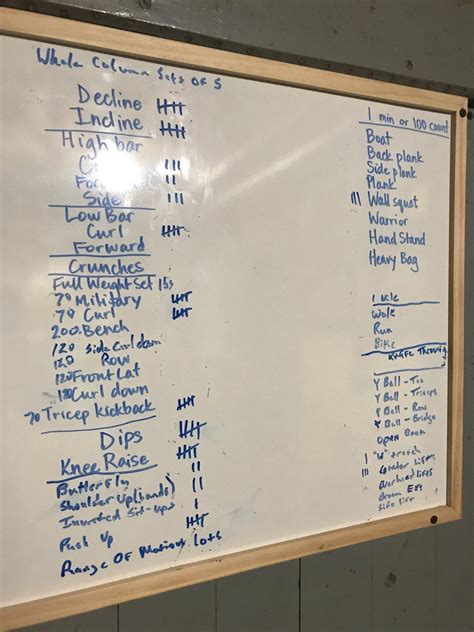 Whole Column Sets OF 5
Decline
Incline
High bar
Side
Low Bar
Curl
Forward
Crunches
Full Weight Set 15s
70 Military
70 Curl
200 Bench
120 Side Curl down
120 Row
120 Front Lat
120 Curl down
70 Tricep kickback
Dips
Knee Raise
Butterfly
Shoulder Up(bands)
Inverted Sit-ups
Push Up
Range OF Motion Lots
1 min or 100 count
Boat
Back plank
Side plank
Plank
Wall squat
Warrior
Hand Stand
Heavy Bag
1 Mile
Walk
Run
Bike
Knife Throwing
Y Ball - 
Y Ball - Triceps
Y Ball - Row
Y Ball - Bridge
Open Back
overhead lifts